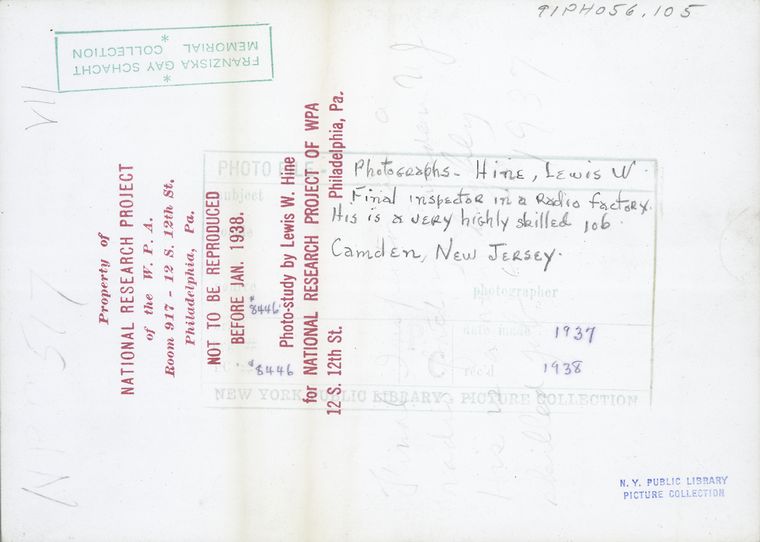 91PH056.105
FRANZISKA GAY SCHACHT
MEMORIAL COLLECTION
* *
VII
Property of
NATIONAL RESEARCH PROJECT
of the W. P. A.
Room 917 - 12 S. 12th St.
Philadelphia, Pa.
NOT TO BE REPRODUCED
BEFORE JAN. 1938.
#8446
#8446
Photo-study by Lewis W. Hine
for NATIONAL RESEARCH PROJECT OF WPA
12 S. 12th St. Philadelphia, Pa.
PHOTO FILE
Photographs - Hine, Lewis W.
subject
Final inspector in a Radio factory.
His is a very highly skilled job.
Camden, New Jersey.
photographer
date made 1937
rec'd 1938
NEW YORK PUBLIC LIBRARY - PICTURE COLLECTION
1937
N. Y. PUBLIC LIBRARY
PICTURE COLLECTION